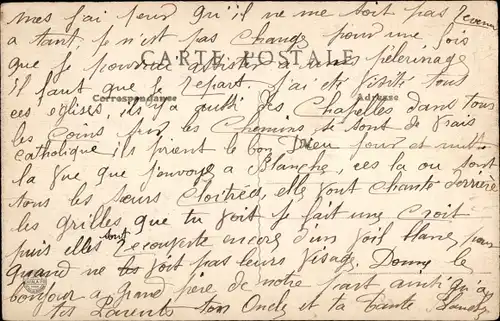 mes j'ai peur qu'il ne me soit pas revenu
a tant, je n'est pas change pour une fois
CARTE POSTALE
que je pourrai assister a un pélerinage
il faut que je repart. J'ai été visité tous
Correspondance Adresse
ces églises, ils y a aussi des Chapelles dans tous
les Coins sur les Chemins se sont de vrais
catholique ils prient le bon Dieu jour et nuit
la Vue que j'envoye a Blanche, ces la ou sont
tous les sœurs Cloitreés, elle vont chanté derrière
les grilles que tu voit je fait une Croit
puis elles sont recouverte encore d'un voil blanc pour
quand ne les voit pas leurs visage. Donne le
bonjour a Grand père de notre part ainsi qu'a
tes Parents ton Oncle et ta Tante Blanche